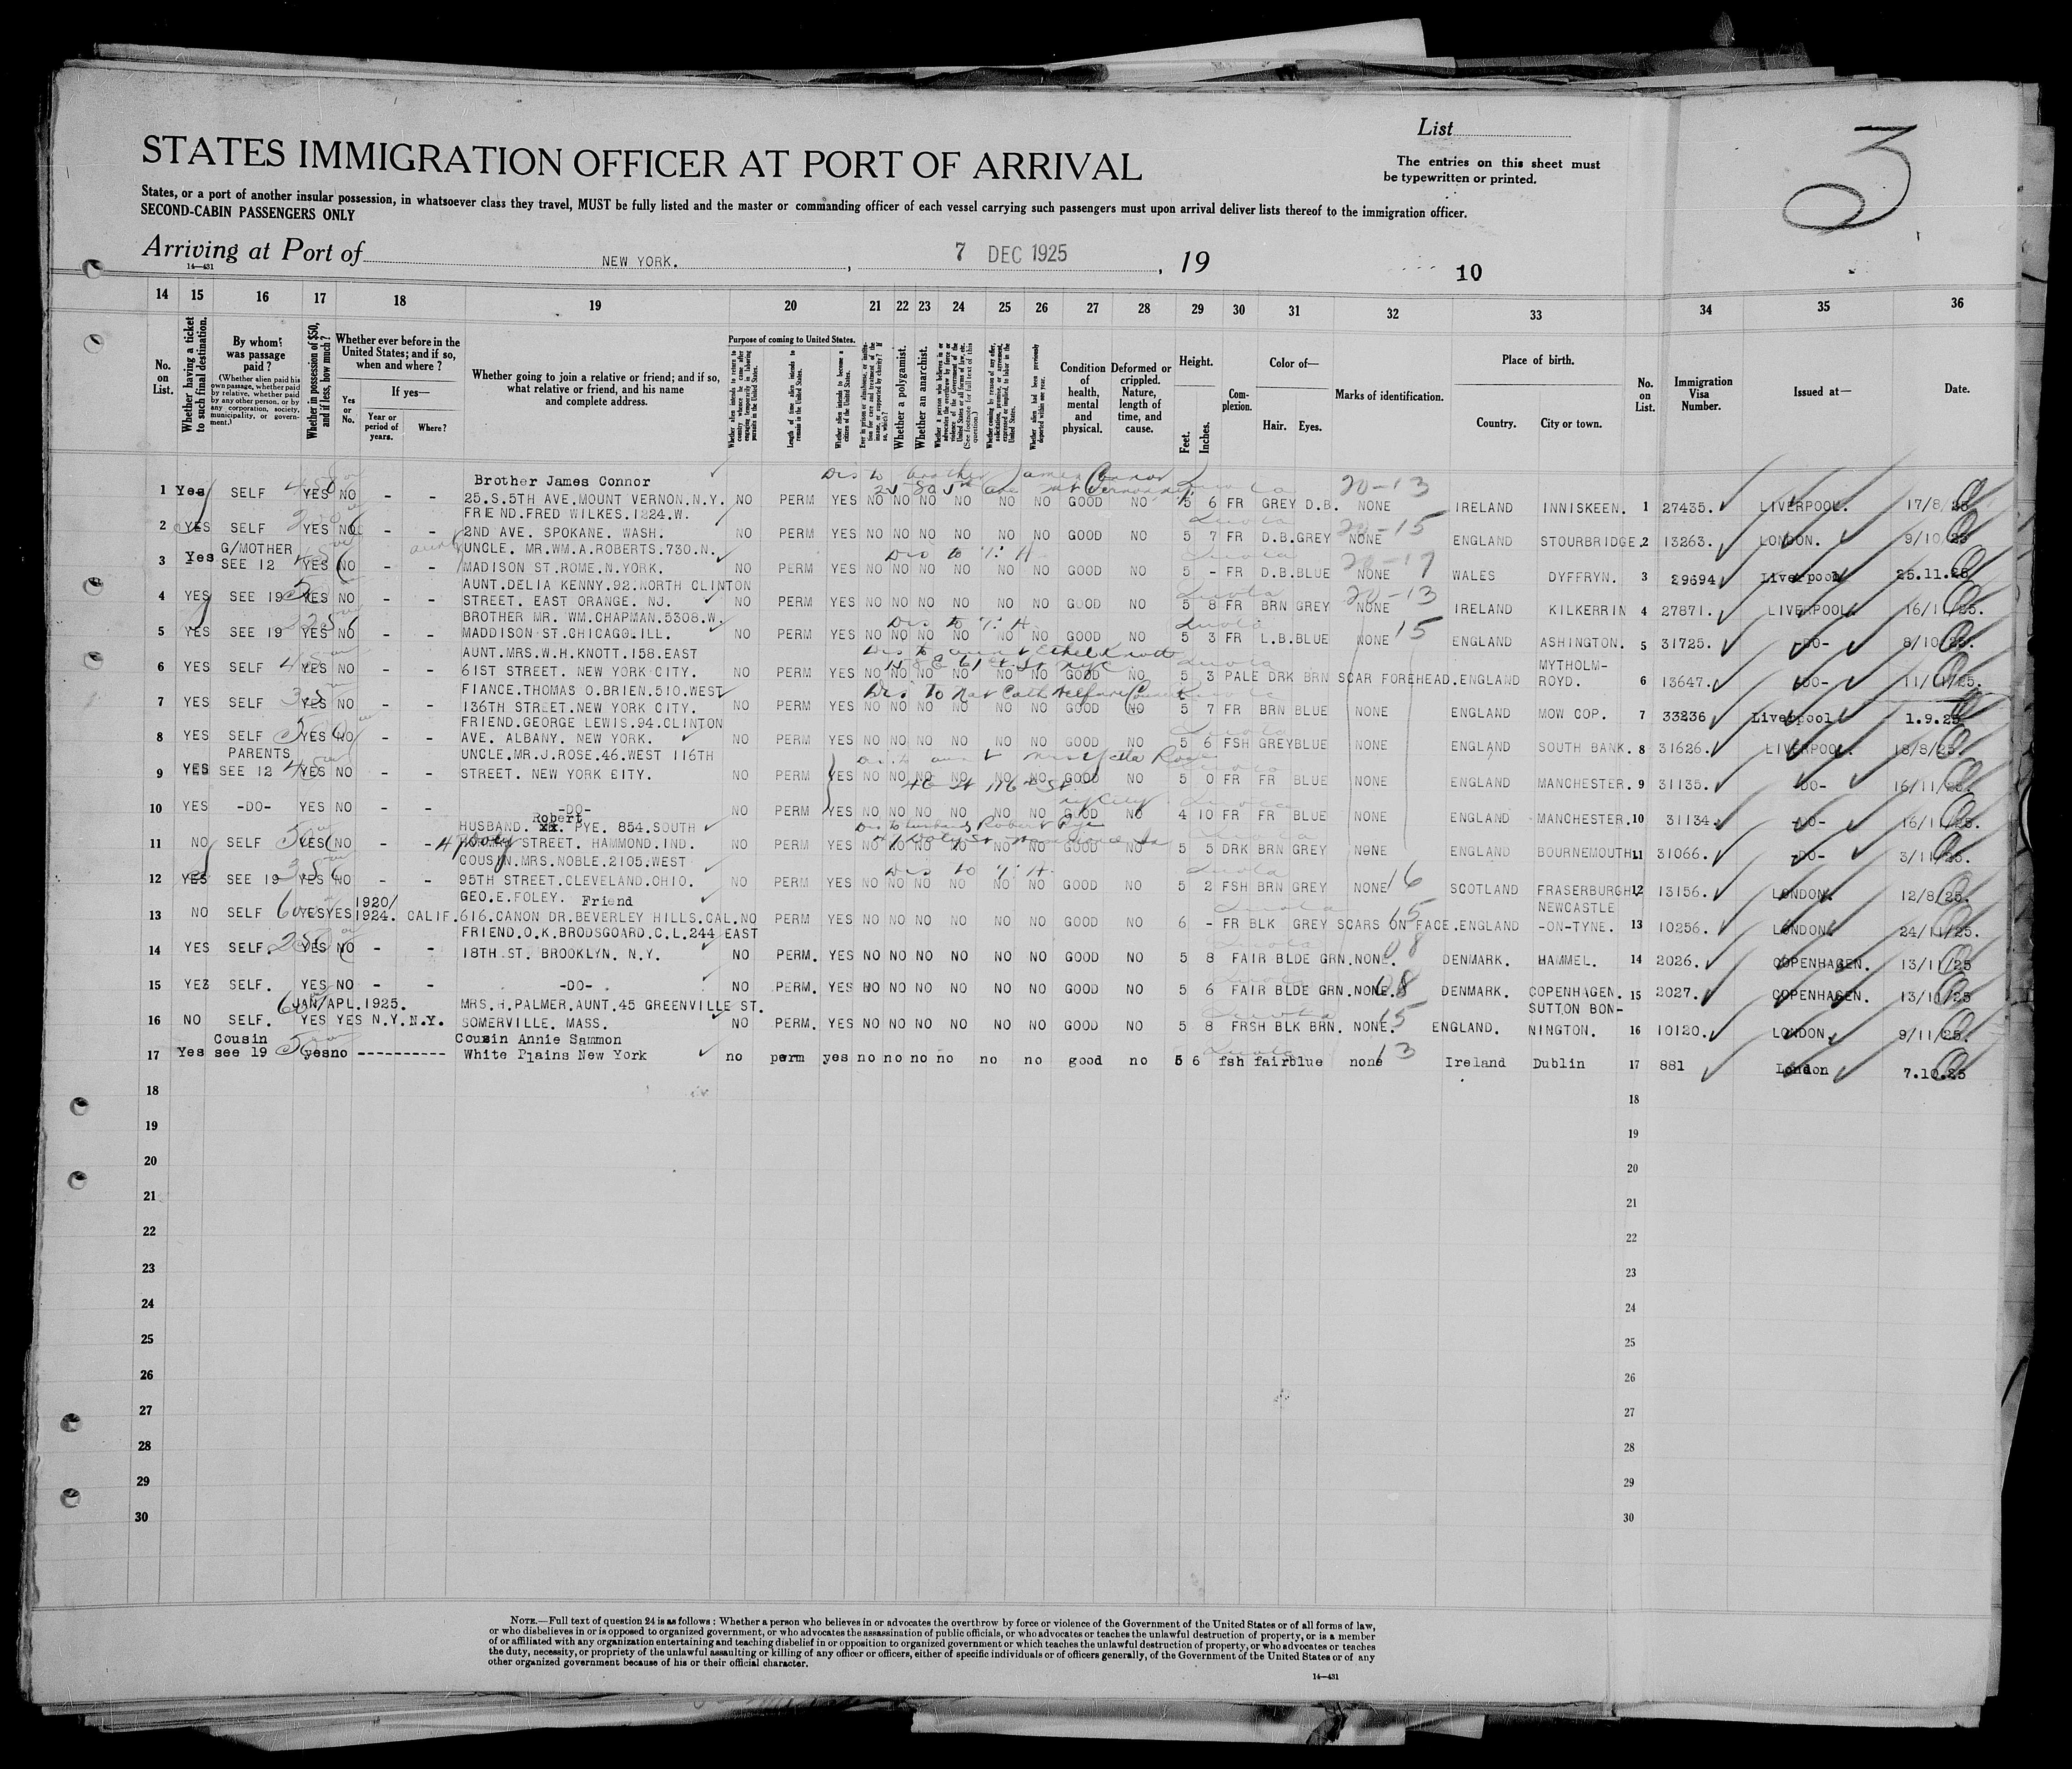 List
3
STATES IMMIGRATION OFFICER AT PORT OF ARRIVAL
The entries on this sheet must
be typewritten or printed.
States, or a port of another insular possession, in whatsoever class they travel, MUST be fully listed and the master or commanding officer of each vessel carrying such passengers must upon arrival deliver lists thereof to the immigration officer.
SECOND-CABIN PASSENGERS ONLY
Arriving at Port of NEW YORK. , 7 DEC 1925 , 19
14—431
10
14 15 16 17 18 19 20 21 22 23 24 25 26 27 28 29 30 31 32 33 34 35 36
No. on List.
Whether having a ticket to such final destination.
By whom was passage paid?
(Whether alien paid his own passage, whether paid by relative, whether paid by any other person, or by any corporation, society, municipality, or government.)
Whether in possession of $50, and if less, how much?
Whether ever before in the United States; and if so, when and where?
Yes or No.
If yes—
Year or period of years.
Where?
Whether going to join a relative or friend; and if so, what relative or friend, and his name and complete address.
Purpose of coming to United States.
Length of time alien intends to remain in the United States.
Whether alien intends to become a citizen of the United States.
Whether a polygamist.
Whether an anarchist.
Condition of health, mental and physical.
Deformed or crippled. Nature, length of time, and cause.
Height.
Feet. Inches.
Complexion.
Color of—
Hair. Eyes.
Marks of identification.
Place of birth.
Country. City or town.
No. on List.
Immigration Visa Number.
Issued at—
Date.
Brother James Connor
1 Yes SELF YES NO - - 25.S.5TH AVE.MOUNT VERNON.N.Y. NO PERM YES NO NO NO NO NO NO GOOD NO 5 6 FR GREY D.B. NONE IRELAND INNISKEEN. 1 27435. LIVERPOOL. 17/8/25
FRIEND.FRED WILKES.1324.W.
2 YES SELF YES NO - - 2ND AVE. SPOKANE. WASH. NO PERM YES NO NO NO NO NO NO GOOD NO 5 7 FR D.B.GREY NONE ENGLAND STOURBRIDGE. 2 13263. LONDON. 9/10/25
G/MOTHER UNCLE. MR.WM.A.ROBERTS.730.N.
3 Yes SEE 12 YES NO - - MADISON ST.ROME.N.YORK. NO PERM YES NO NO NO NO NO NO GOOD NO 5 - FR D.B.BLUE NONE WALES DYFFRYN. 3 29694 Liverpool 25.11.25
AUNT.DELIA KENNY.92.NORTH CLINTON
4 YES SEE 19 YES NO - - STREET. EAST ORANGE. NJ. NO PERM YES NO NO NO NO NO NO GOOD NO 5 8 FR BRN GREY NONE IRELAND KILKERRIN 4 27871. LIVERPOOL 16/11/25.
BROTHER MR. WM.CHAPMAN.5308.W.
5 YES SEE 19 YES NO - - MADDISON ST.CHICAGO.ILL. NO PERM YES NO NO NO NO NO NO GOOD NO 5 3 FR L.B.BLUE NONE ENGLAND ASHINGTON. 5 31725. -DO- 8/10/25.
AUNT.MRS.W.H.KNOTT.158.EAST MYTHOLM-
6 YES SELF YES NO - - 61ST STREET. NEW YORK CITY. NO PERM YES NO NO NO NO NO NO GOOD NO 5 3 PALE DRK BRN SCAR FOREHEAD. ENGLAND ROYD. 6 13647. -DO- 11/11/25.
FIANCE.THOMAS O.BRIEN.510.WEST
7 YES SELF YES NO - - 136TH STREET.NEW YORK CITY. NO PERM YES NO NO NO NO NO NO GOOD NO 5 7 FR BRN BLUE NONE ENGLAND MOW COP. 7 33236 Liverpool 1.9.25
FRIEND.GEORGE LEWIS.94.CLINTON
8 YES SELF YES NO - - AVE. ALBANY. NEW YORK. NO PERM YES NO NO NO NO NO NO GOOD NO 5 6 FSH GREYBLUE NONE ENGLAND SOUTH BANK. 8 31626. LIVERPOOL. 18/8/25.
PARENTS UNCLE.MR.J.ROSE.46.WEST 116TH
9 YES SEE 12 YES NO - - STREET. NEW YORK CITY. NO PERM YES NO NO NO NO NO NO GOOD NO 5 0 FR FR BLUE NONE ENGLAND MANCHESTER. 9 31135. -DO- 16/11/25.
10 YES -DO- YES NO - - -DO- NO PERM YES NO NO NO NO NO NO GOOD NO 4 10 FR FR BLUE NONE ENGLAND MANCHESTER. 10 31134. -DO- 16/11/25.
Robert
HUSBAND. PYE. 854.SOUTH
11 NO SELF YES NO - - STREET. HAMMOND.IND. NO PERM YES NO NO NO NO NO NO GOOD NO 5 5 DRK BRN GREY NONE ENGLAND BOURNEMOUTH. 11 31066. -DO- 3/11/25.
COUSIN.MRS.NOBLE.2105.WEST
12 YES SEE 19 YES NO - - 95TH STREET.CLEVELAND.OHIO. NO PERM YES NO NO NO NO NO NO GOOD NO 5 2 FSH BRN GREY NONE SCOTLAND FRASERBURGH. 12 13156. LONDON. 12/8/25.
1920/ GEO.E.FOLEY. Friend NEWCASTLE
13 NO SELF YES YES 1924. CALIF. 616.CANON DR.BEVERLEY HILLS.CAL. NO PERM YES NO NO NO NO NO NO GOOD NO 6 - FR BLK GREY SCARS ON FACE. ENGLAND -ON-TYNE. 13 10256. LONDON. 24/11/25.
FRIEND.O.K.BRODSGOARD.C.L.244 EAST
14 YES SELF. YES NO - - 18TH.ST. BROOKLYN. N.Y. NO PERM. YES NO NO NO NO NO NO GOOD NO 5 8 FAIR BLDE GRN. NONE. DENMARK. HAMMEL. 14 2026. COPENHAGEN. 13/11/25
15 YES SELF. YES NO - - -DO- NO PERM. YES NO NO NO NO NO NO GOOD NO 5 6 FAIR BLDE GRN. NONE. DENMARK. COPENHAGEN. 15 2027. COPENHAGEN. 13/11/25
JAN/APL.1925. MRS.H.PALMER.AUNT.45 GREENVILLE ST. SUTTON BON-
16 NO SELF. YES YES N.Y. N.Y. SOMERVILLE. MASS. NO PERM. YES NO NO NO NO NO NO GOOD NO 5 8 FRSH BLK BRN. NONE. ENGLAND. NINGTON. 16 10120. LONDON. 9/11/25.
Cousin Cousin Annie Sammon
17 Yes see 19 yes no ---------- White Plains New York no perm yes no no no no no no good no 5 6 fsh fair blue none Ireland Dublin 17 881 London 7.10.25
18 18
19 19
20 20
21 21
22 22
23 23
24 24
25 25
26 26
27 27
28 28
29 29
30 30
NOTE.—Full text of question 24 is as follows: Whether a person who believes in or advocates the overthrow by force or violence of the Government of the United States or of all forms of law,
or who disbelieves in or is opposed to organized government, or who advocates the assassination of public officials, or who advocates or teaches the unlawful destruction of property, or is a member
of or affiliated with any organization entertaining and teaching disbelief in or opposition to organized government or which teaches the unlawful destruction of property, or who advocates or teaches
the duty, necessity, or propriety of the unlawful assaulting or killing of any officer or officers, either of specific individuals or of officers generally, of the Government of the United States or of any
other organized government because of his or their official character.
14—431